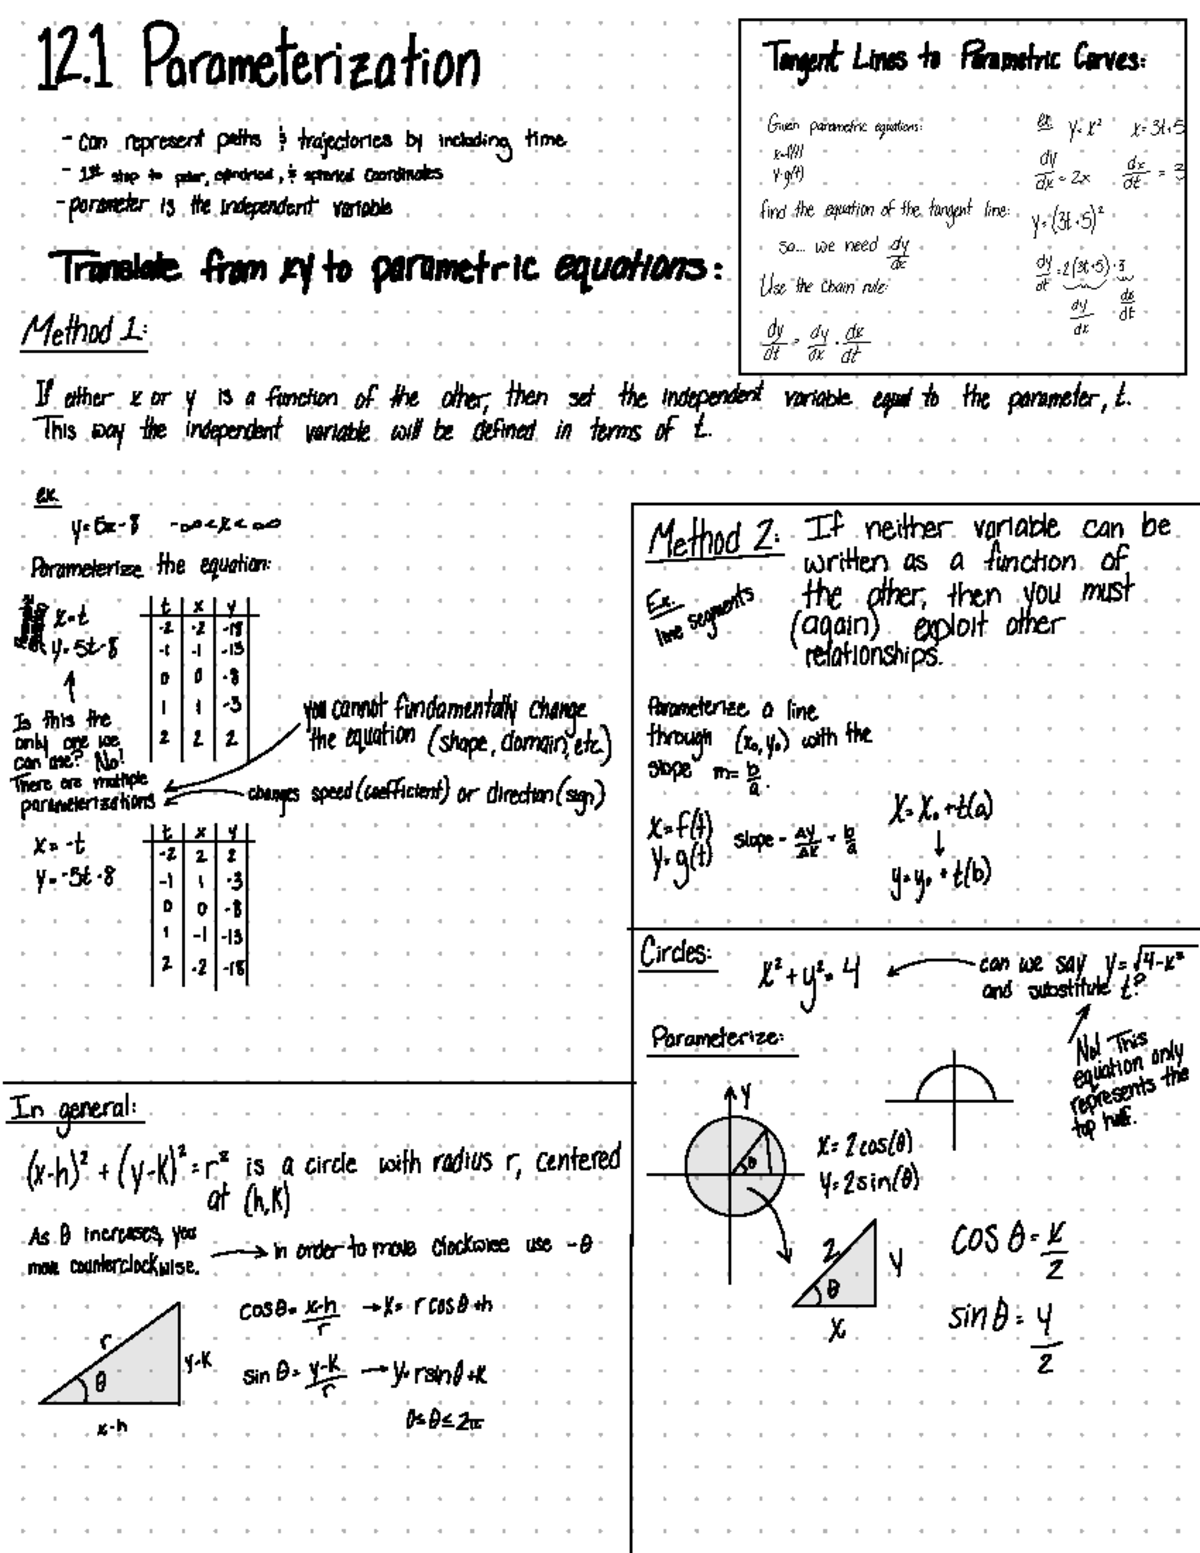 12.1 Parameterization
- can represent paths & trajectories by including time
- 1st step to polar, cylindrical, & spherical coordinates
- parameter is the independent variable
Translate from xy to parametric equations:
Tangent Lines to Parametric Curves:
Given parametric equations:
x=f(t)
y=g(t)
find the equation of the tangent line:
so... we need dy/dx
Use the chain rule:
dy/dt = dy/dx · dx/dt
ex. y=x² x=3t+5
dy/dx = 2x dx/dt = 3
y=(3t+5)²
dy/dt = 2(3t+5)·3
dy/dx dx/dt
Method 1:
If either x or y is a function of the other, then set the independent variable equal to the parameter, t.
This way the independent variable will be defined in terms of t.
ex.
y=5x-8 -∞<x<∞
Parameterize the equation:
x=t
y=5t-8
t x y
-2 -2 -18
-1 -1 -13
0 0 -8
1 1 -3
2 2 2
Is this the
only one we
can use? No!
There are multiple
parameterizations
you cannot fundamentally change
the equation (shape, domain, etc.)
changes speed (coefficient) or direction (sign)
x=-t
y=-5t-8
t x y
-2 2 2
-1 1 -3
0 0 -8
1 -1 -13
2 -2 -18
Method 2: If neither variable can be
written as a function of
the other, then you must
(again) exploit other
relationships.
Ex.
line segments
Parameterize a line
through (x₀,y₀) with the
slope m=b/a.
x=f(t)
y=g(t)
slope = Δy/Δx = b/a
x=x₀+t(a)
↓
y=y₀+t(b)
Circles:
x²+y²=4
can we say y=√4-x²
and substitute t?
No! This
equation only
represents the
top half.
Parameterize:
y
θ
x=2cos(θ)
y=2sin(θ)
2
y
θ
x
cos θ = x/2
sin θ = y/2
In general:
(x-h)²+(y-k)²=r² is a circle with radius r, centered
at (h,k)
As θ increases, you
move counterclockwise.
→ in order to move clockwise use -θ
r
y-k
θ
x-h
cosθ = x-h/r → x= r cosθ+h
sin θ = y-k/r → y=rsinθ+k
0≤θ≤2π